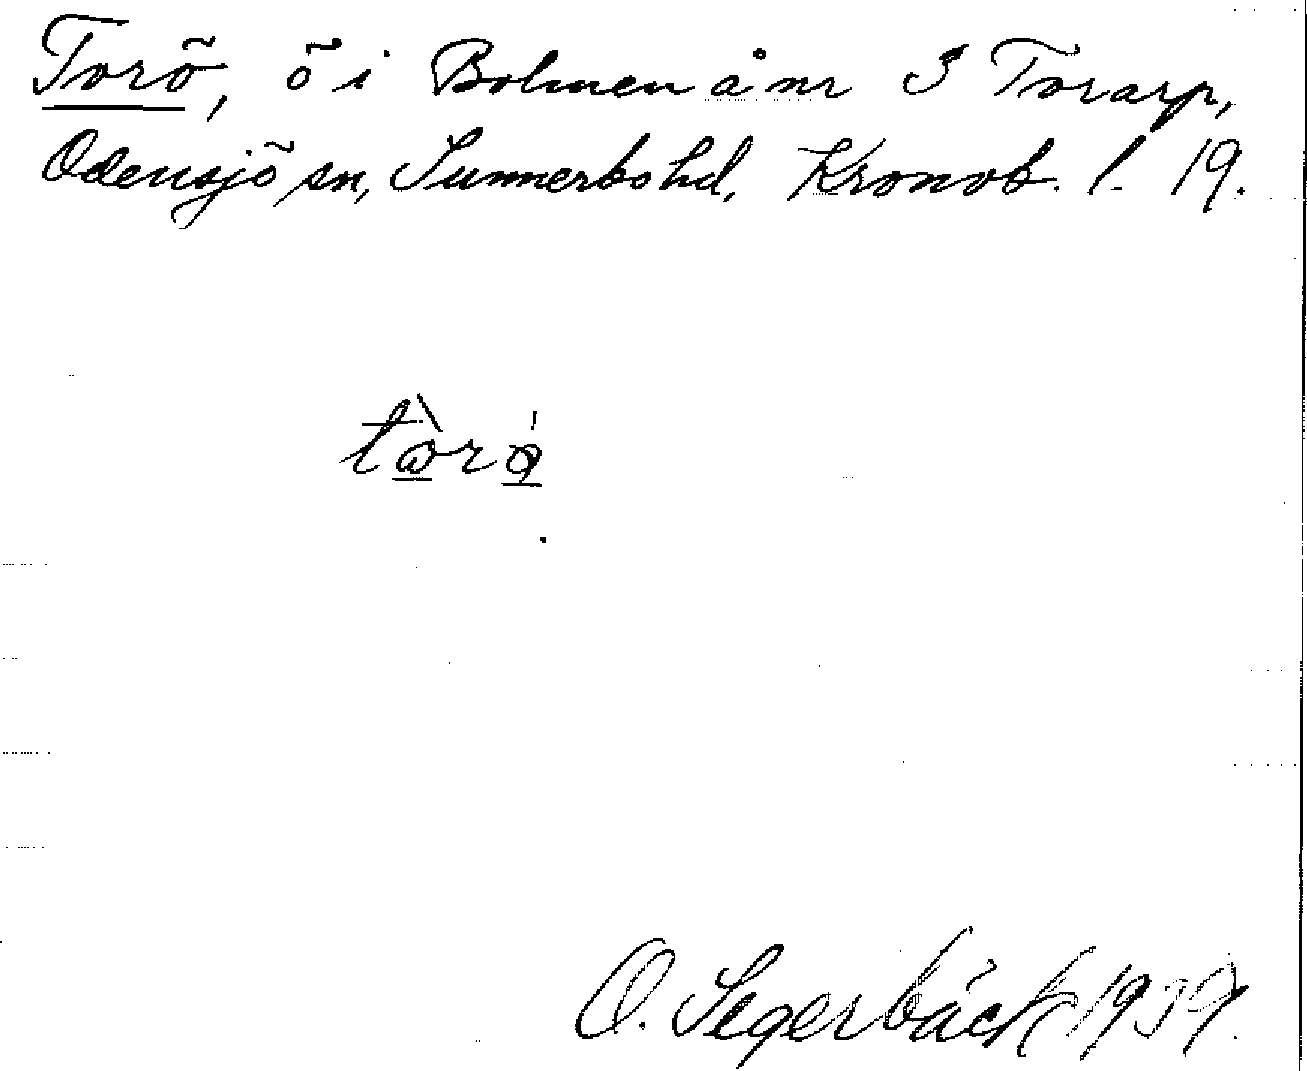 Torö, ö i Bolmen å nr 3 Torarp,
Odensjö sn, Sunnerbo hd, Kronob. l. 19.
O. Segerbäck 1939.